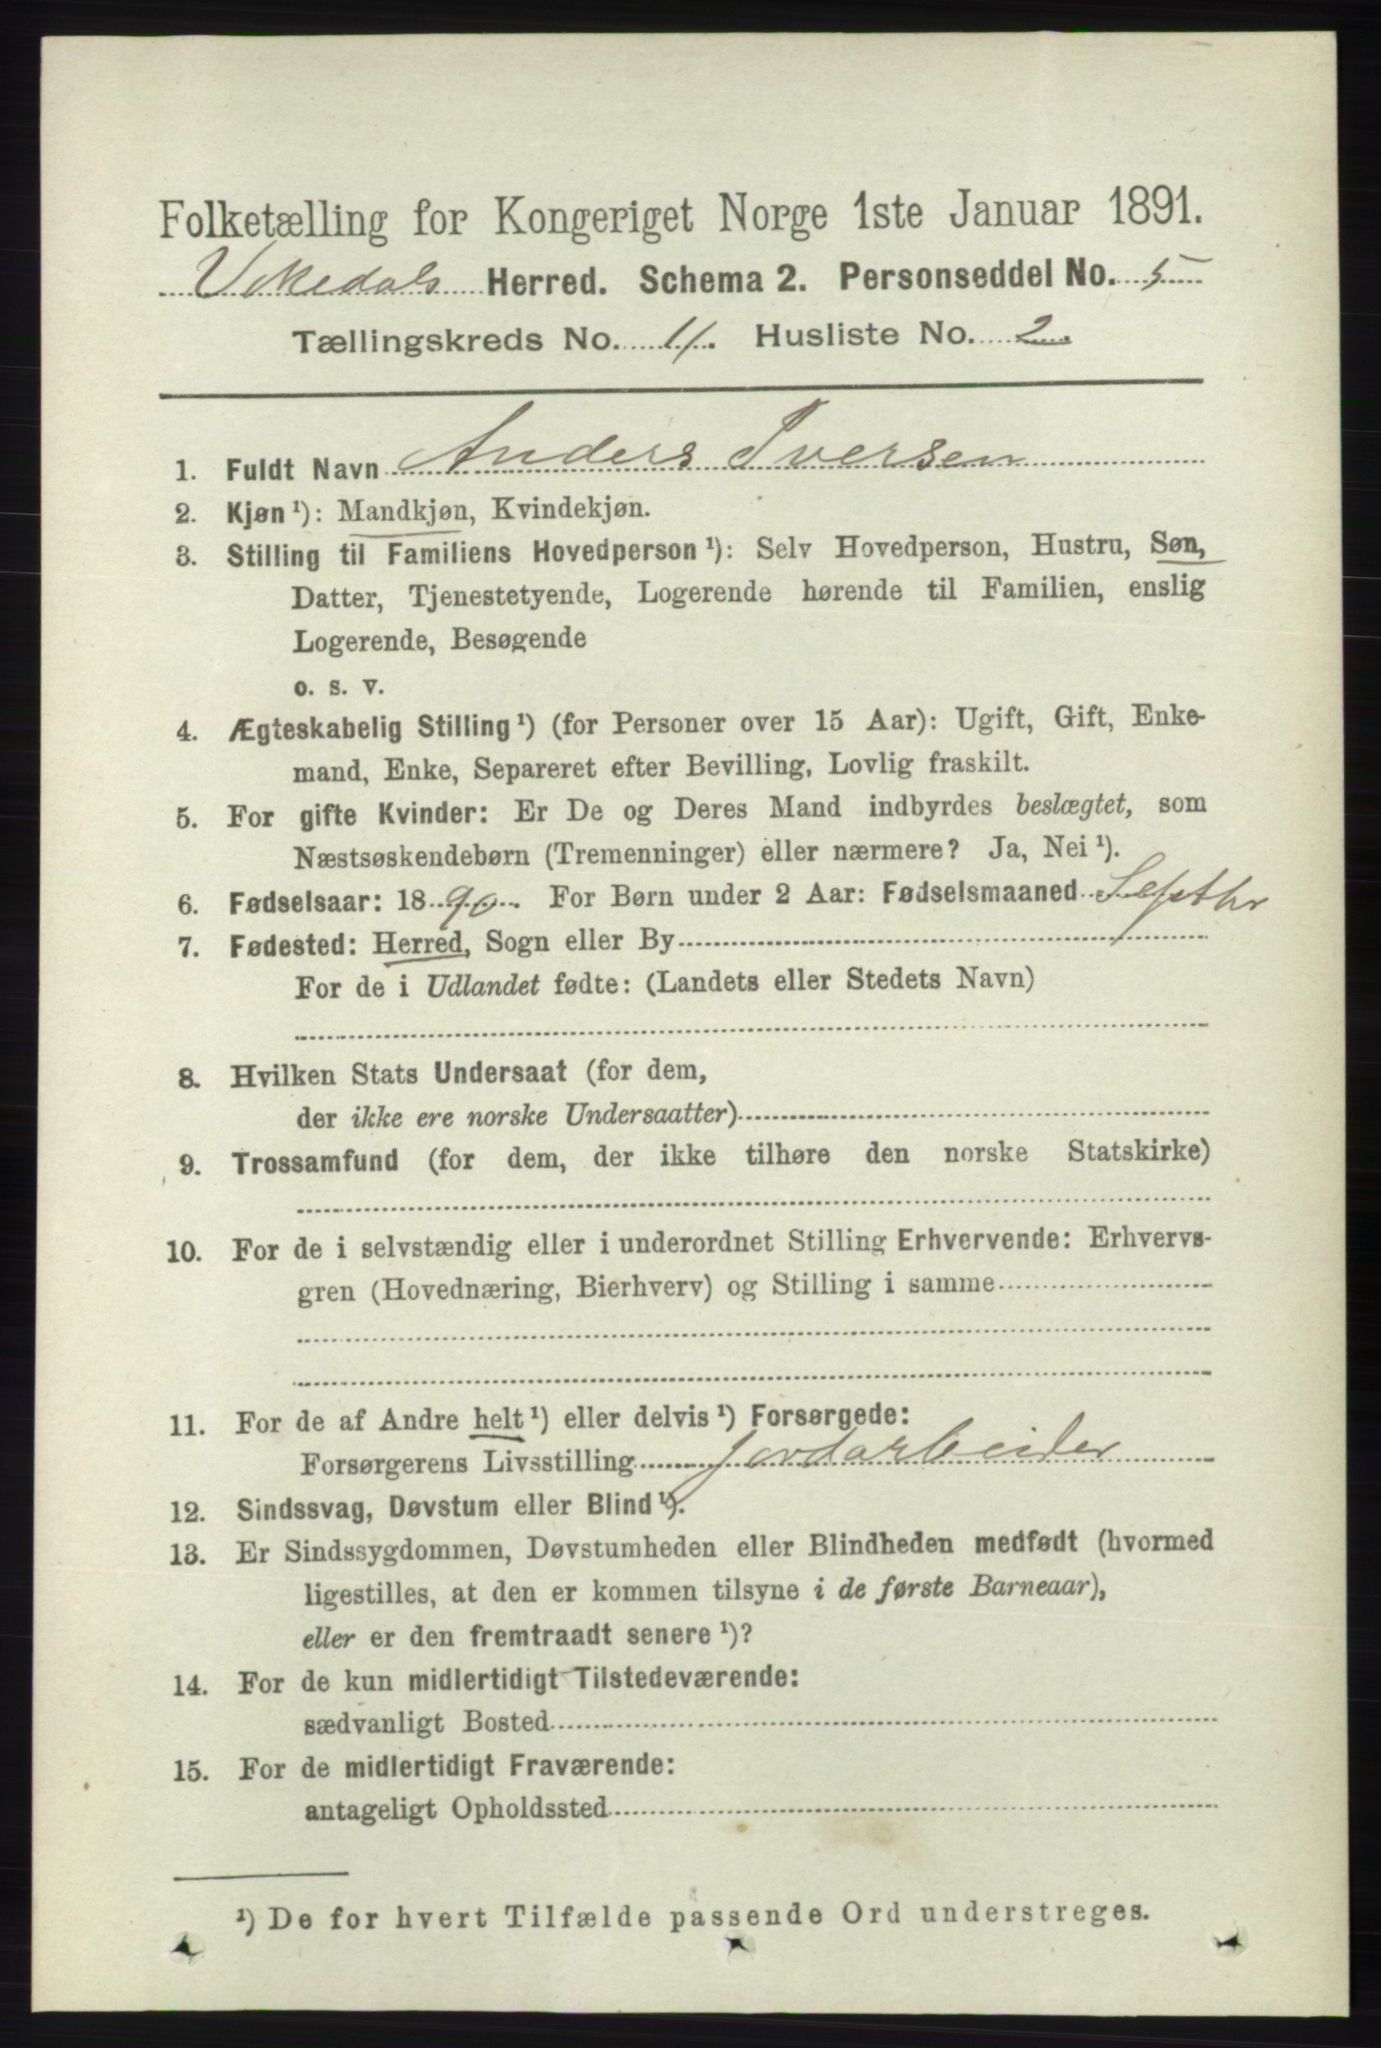 Folketælling for Kongeriget Norge 1ste Januar 1891.
Vikedals Herred. Schema 2. Personseddel No. 5
Tællingskreds No. 11. Husliste No. 2
1. Fuldt Navn Anders Iversen
2. Kjøn ¹): Mandkjøn, Kvindekjøn.
3. Stilling til Familiens Hovedperson ¹): Selv Hovedperson, Hustru, Søn,
Datter, Tjenestetyende, Logerende hørende til Familien, enslig
Logerende, Besøgende
o. s. v.
4. Ægteskabelig Stilling ¹) (for Personer over 15 Aar): Ugift, Gift, Enke-
mand, Enke, Separeret efter Bevilling, Lovlig fraskilt.
5. For gifte Kvinder: Er De og Deres Mand indbyrdes beslægtet, som
Næstsøskendebørn (Tremenninger) eller nærmere? Ja, Nei ¹).
6. Fødselsaar: 1890. For Børn under 2 Aar: Fødselsmaaned Septbr
7. Fødested: Herred, Sogn eller By
For de i Udlandet fødte: (Landets eller Stedets Navn)
8. Hvilken Stats Undersaat (for dem,
der ikke ere norske Undersaatter)
9. Trossamfund (for dem, der ikke tilhøre den norske Statskirke)
10. For de i selvstændig eller i underordnet Stilling Erhvervende: Erhvervs-
gren (Hovednæring, Bierhverv) og Stilling i samme
11. For de af Andre helt ¹) eller delvis ¹) Forsørgede:
Forsørgerens Livsstilling Jordarbeider
12. Sindssvag, Døvstum eller Blind ¹).
13. Er Sindssygdommen, Døvstumheden eller Blindheden medfødt (hvormed
ligestilles, at den er kommen tilsyne i de første Barneaar),
eller er den fremtraadt senere ¹)?
14. For de kun midlertidigt Tilstedeværende:
sædvanligt Bosted
15. For de midlertidigt Fraværende:
antageligt Opholdssted
¹) De for hvert Tilfælde passende Ord understreges.